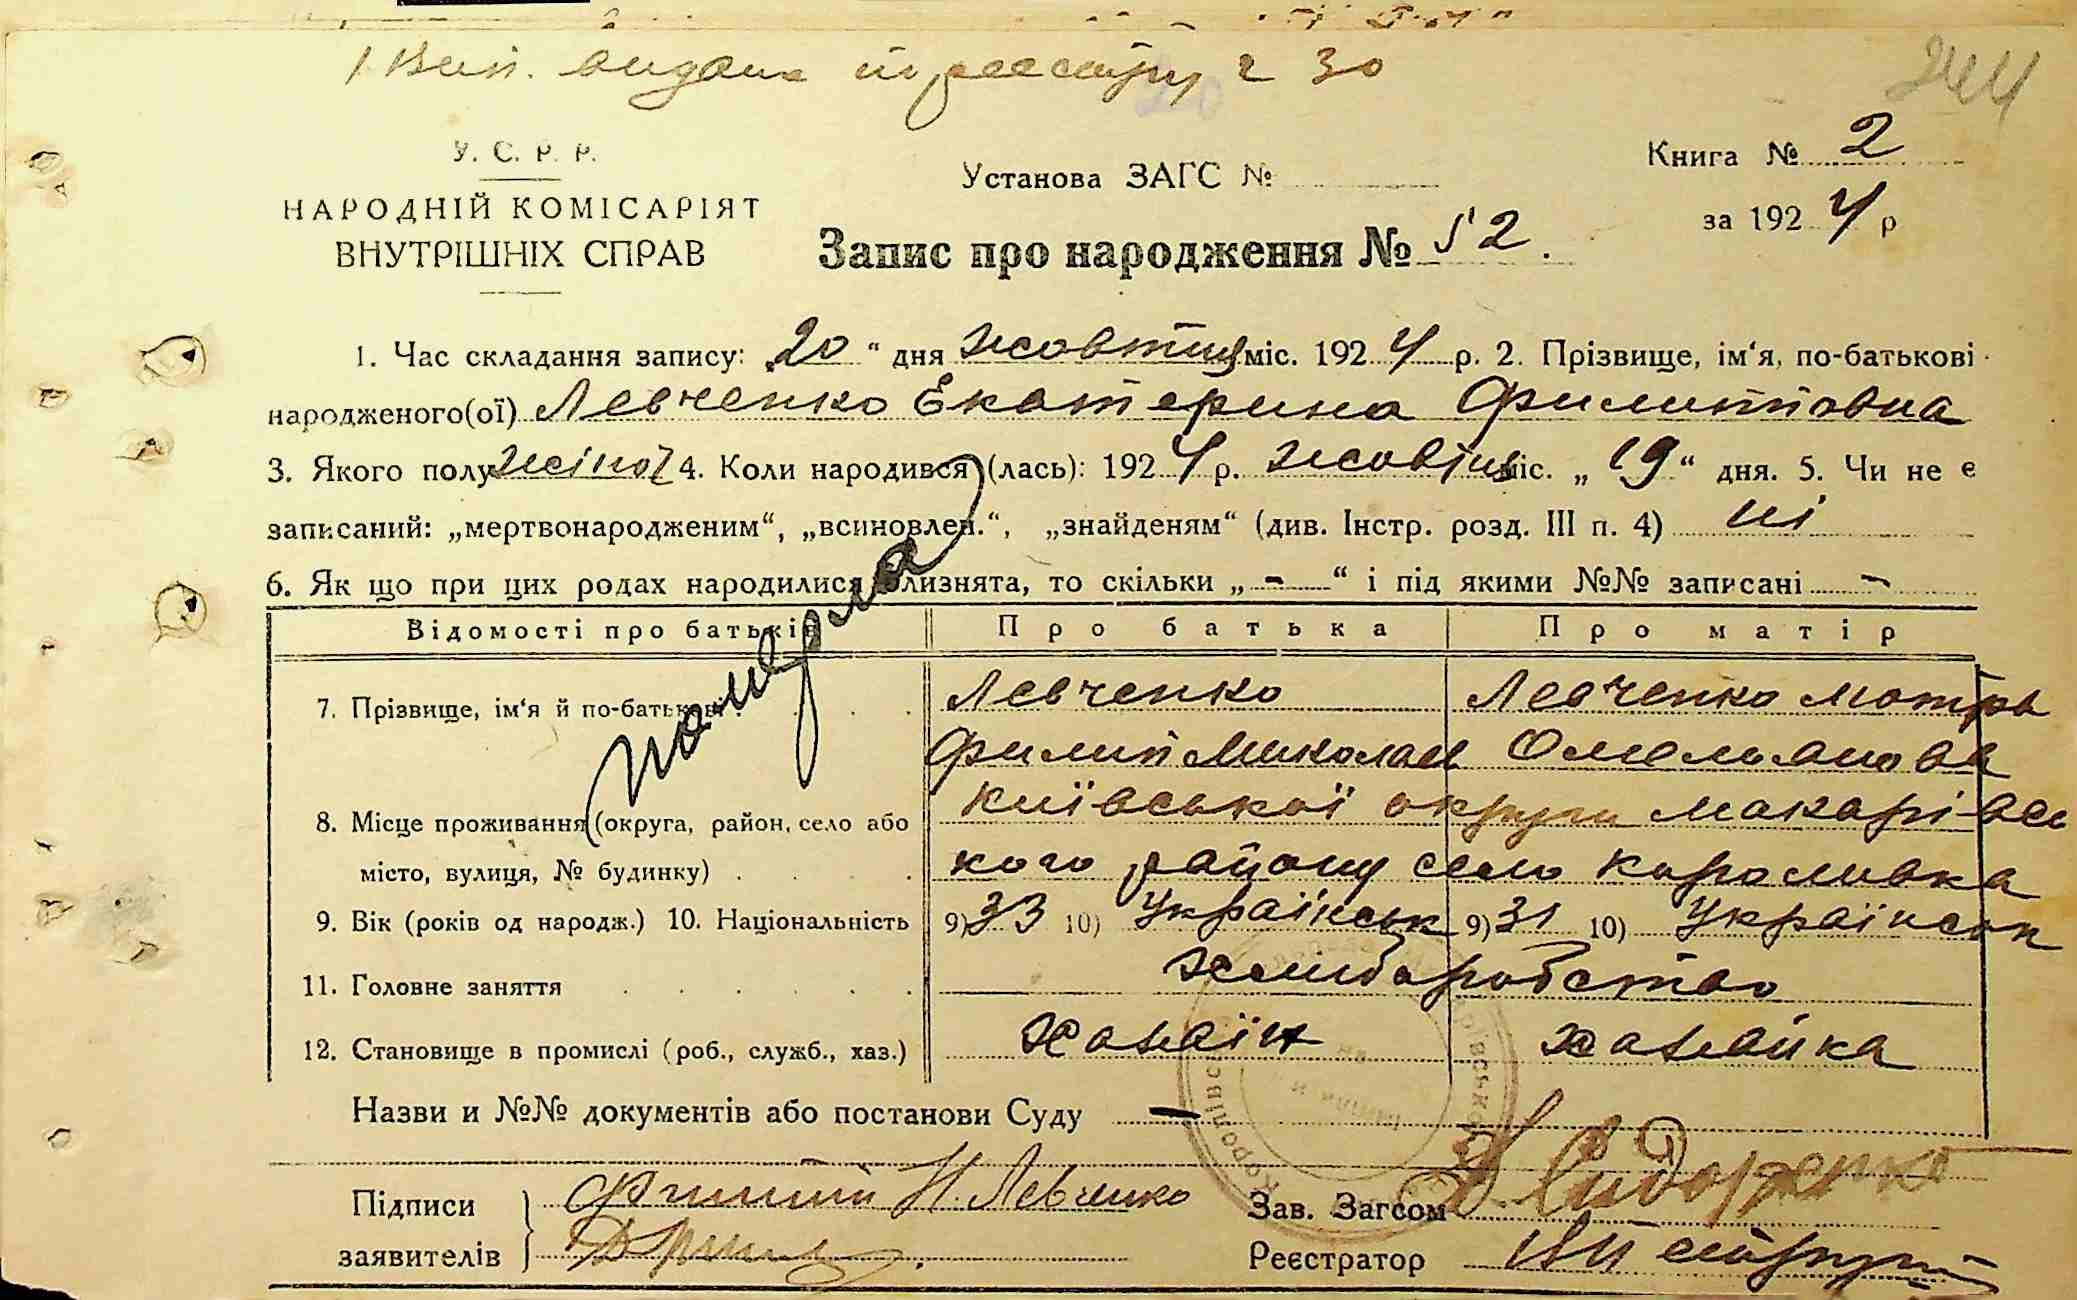 1 Вип. видана по реєстру 2 30
244
У. С. Р. Р.
НАРОДНІЙ КОМІСАРІЯТ
ВНУТРІШНІХ СПРАВ
Установа ЗАГС №
Книга № 2
за 1924 р
Запис про народження № 52.
1. Час складання запису: „20“ дня жовтня міс. 1924 р. 2. Прізвище, ім‘я, по-батькові
народженого(ої) Левченко Екатерина Филиповна
3. Якого полу жіної 4. Коли народився (лась): 1924 р. жовтня міс. „19“ дня. 5. Чи не є
записаний: „мертвонародженим“, „всиновлен.“, „знайденям“ (див. Інстр. розд. III п. 4) ні
6. Як що при цих родах народилися близнята, то скільки „-“ і під якими №№ записані -
померла
Відомості про батьків Про батька Про матір
7. Прізвище, ім‘я й по-батькові Левченко Левченко Мотря
Филип Миколаев Омельянова
8. Місце проживання (округа, район, село або Київської округи Макарівсь
місто, вулиця, № будинку) кого району село Короливка
9. Вік (років од народж.) 10. Національність 9) 33 10) Українськ 9) 31 10) Українськ
11. Головне заняття хлиборобство
12. Становище в промислі (роб., служб., хаз.) хазаїн хазайка
Назви и №№ документів або постанови Суду —
Підписи Филип Н. Левченко Зав. Загсом Сидоренко
заявителів Реєстратор